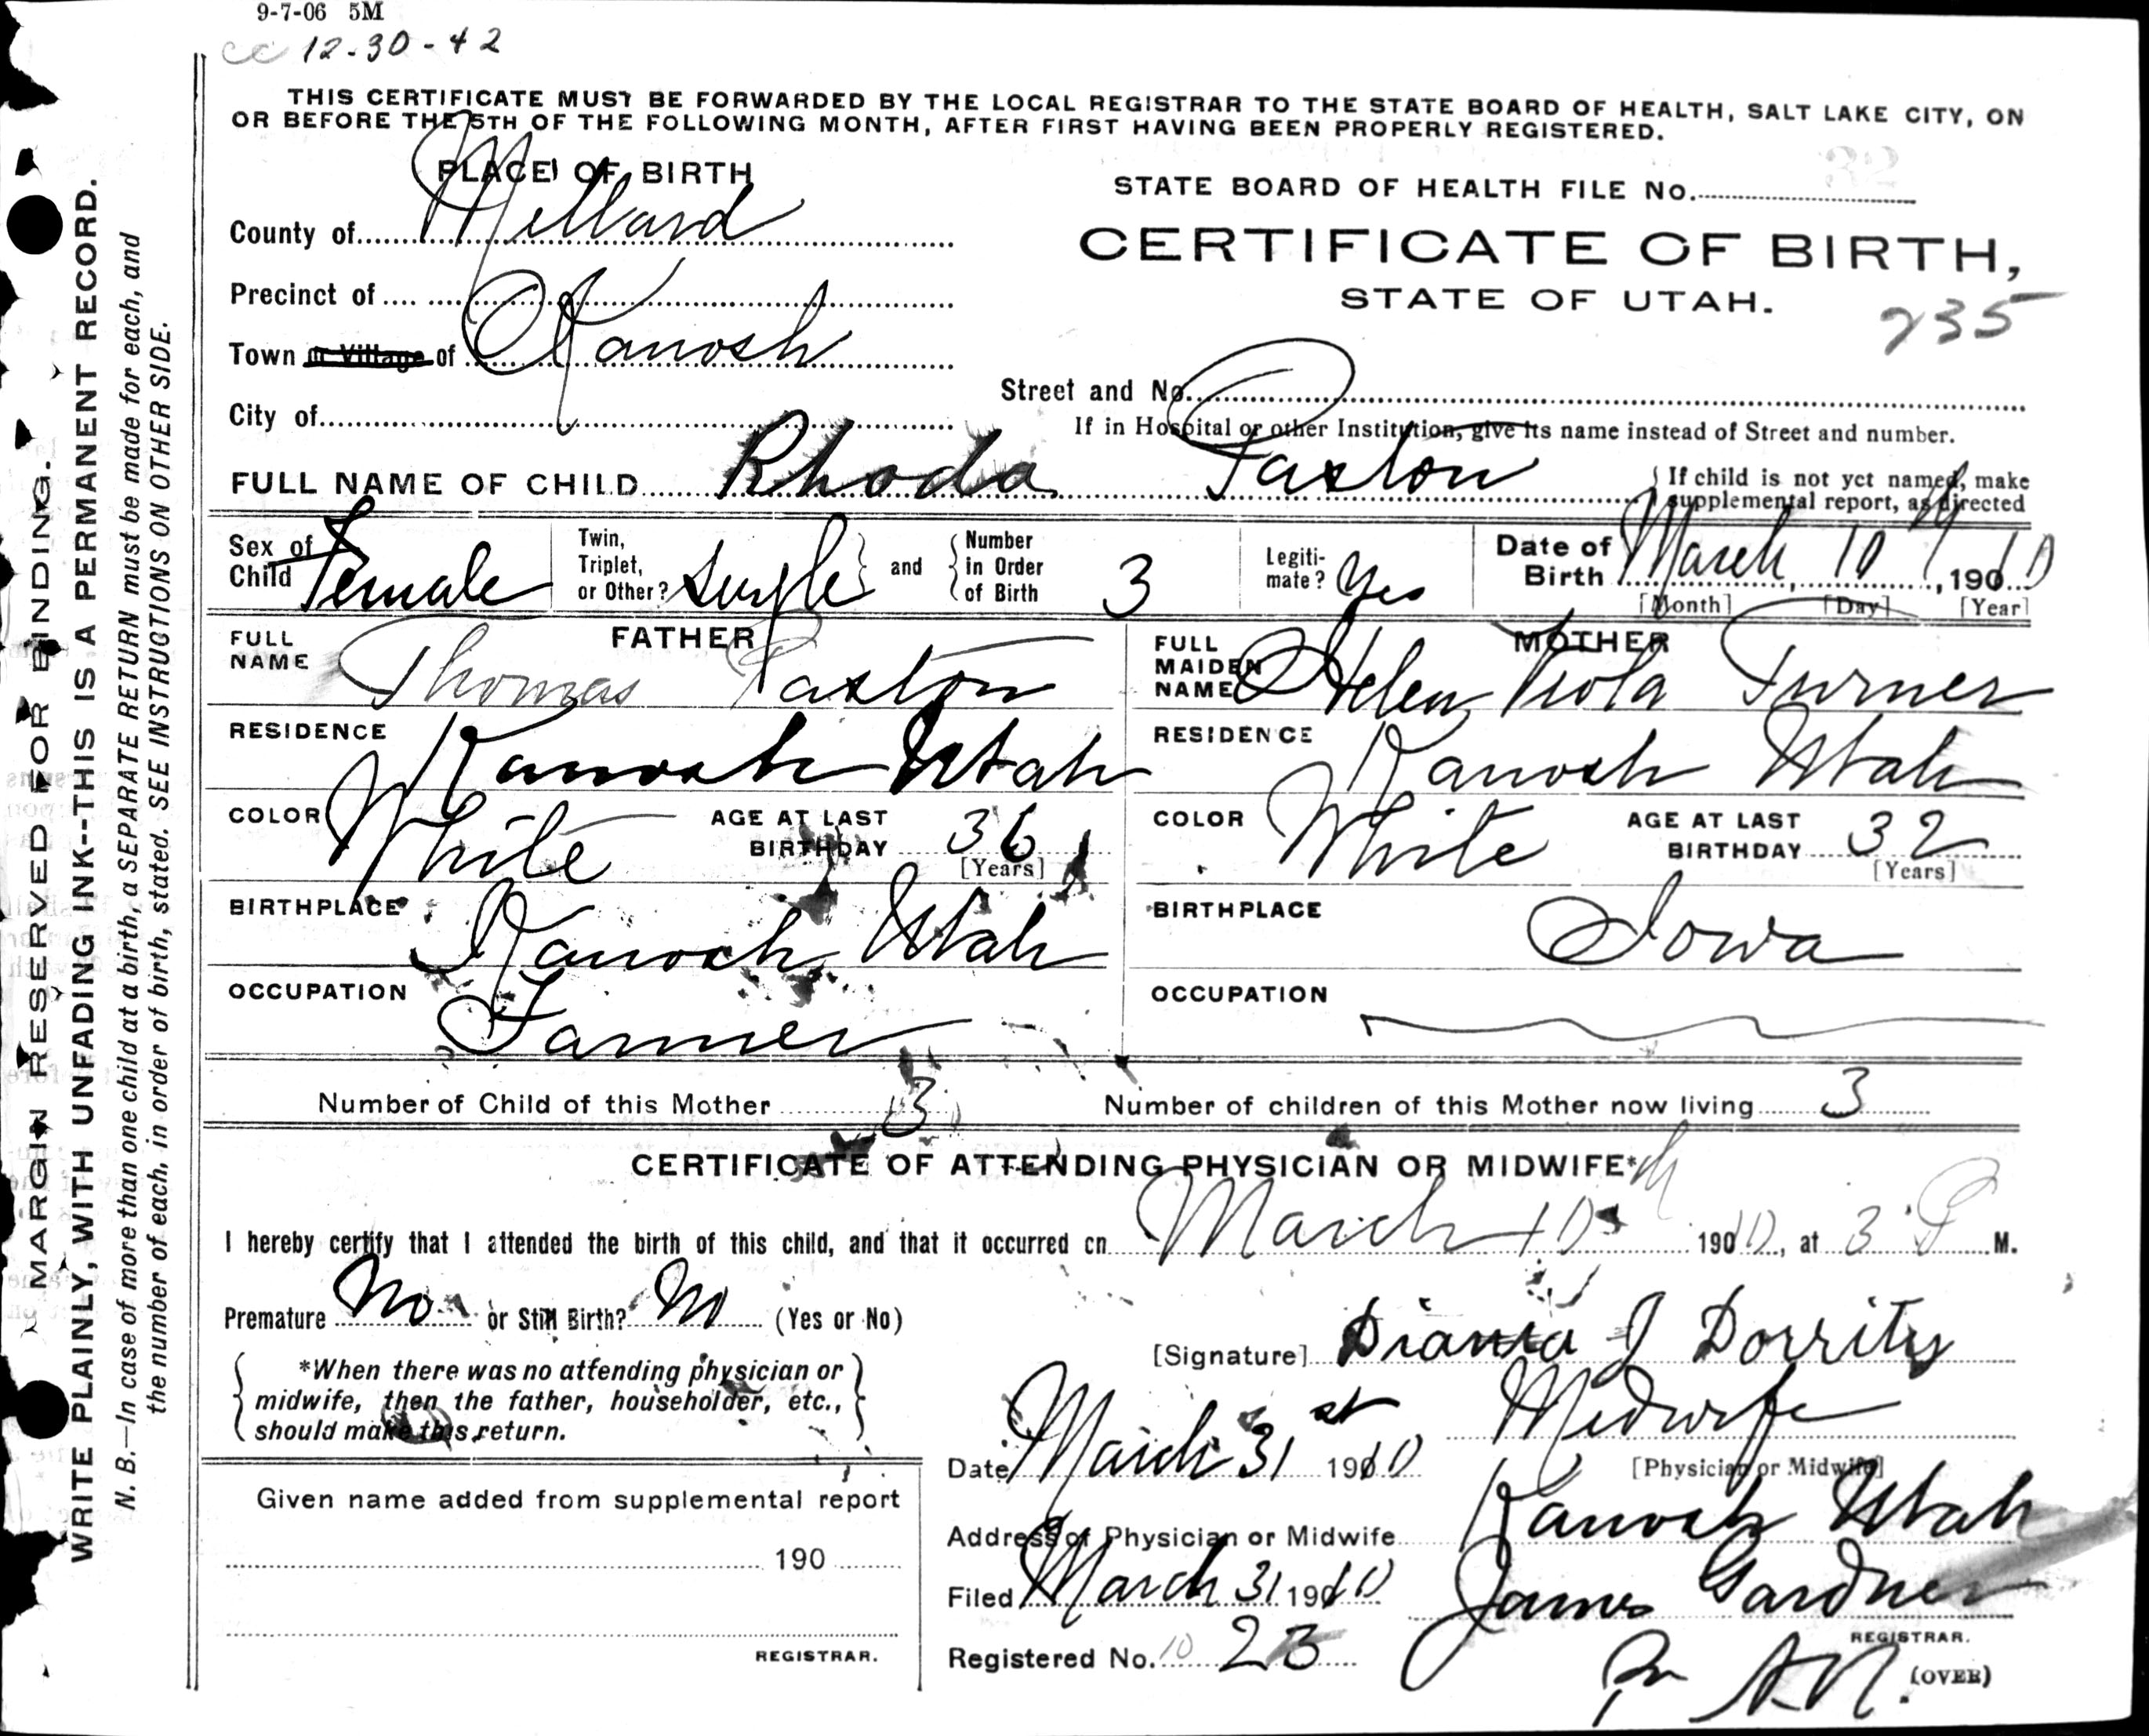 9-7-06 5M
cc 12-30-42
THIS CERTIFICATE MUST BE FORWARDED BY THE LOCAL REGISTRAR TO THE STATE BOARD OF HEALTH, SALT LAKE CITY, ON
OR BEFORE THE 5TH OF THE FOLLOWING MONTH, AFTER FIRST HAVING BEEN PROPERLY REGISTERED.
PLACE OF BIRTH
32
STATE BOARD OF HEALTH FILE No.
County of Millard
CERTIFICATE OF BIRTH,
STATE OF UTAH.
235
Precinct of
Town or Village of Kanosh
Street and No.
City of
If in Hospital or other Institution, give its name instead of Street and number.
FULL NAME OF CHILD Rhoda Paxton
If child is not yet named, make supplemental report, as directed
Sex of Child Female
Twin, Triplet, or Other? Single and Number in Order of Birth 3
Legiti-mate? Yes
Date of Birth March 10, 1910
[Month] [Day] [Year]
FATHER
FULL NAME Thomas Paxton
RESIDENCE Kanosh Utah
COLOR White AGE AT LAST BIRTHDAY 36 [Years]
BIRTHPLACE Kanosh, Utah
OCCUPATION Farmer
MOTHER
FULL MAIDEN NAME Helen Viola Turner
RESIDENCE Kanosh Utah
COLOR White AGE AT LAST BIRTHDAY 32 [Years]
BIRTHPLACE Iowa
OCCUPATION
Number of Child of this Mother 3 Number of children of this Mother now living 3
CERTIFICATE OF ATTENDING PHYSICIAN OR MIDWIFE*
I hereby certify that I attended the birth of this child, and that it occurred on March 10th 1910, at 3 P M.
Premature No or Still Birth? No (Yes or No)
*When there was no attending physician or
midwife, then the father, householder, etc.,
should make this return.
[Signature] Diania J Dorrity
Midwife
Date March 31st 1910
[Physician or Midwife]
Address of Physician or Midwife Kanosh Utah
Filed March 31 1910 James Gardner
REGISTRAR.
Registered No. 10 23
Pr A N.
(OVER)
Given name added from supplemental report
190
REGISTRAR.
MARGIN RESERVED FOR BINDING.
WRITE PLAINLY, WITH UNFADING INK--THIS IS A PERMANENT RECORD.
N. B.—In case of more than one child at a birth, a SEPARATE RETURN must be made for each, and
the number of each, in order of birth, stated. SEE INSTRUCTIONS ON OTHER SIDE.